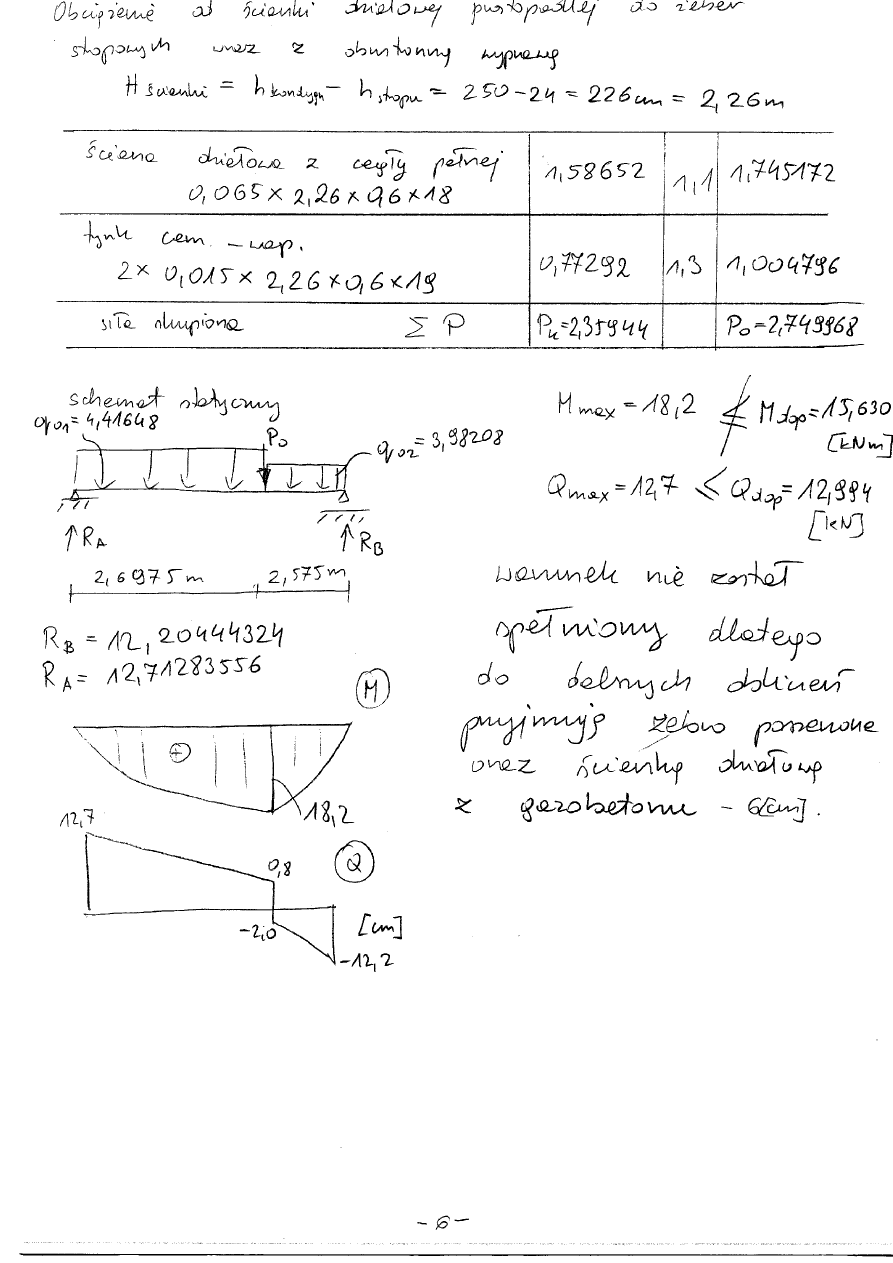 Obciążenie od ścianki działowej prostopadłej do żeber
stropowych wraz z obustronną wyprawą
H ścianki = h kondygn - h stropu = 250-24 = 226cm = 2,26m
ściana działowa z cegły pełnej
0,065 × 2,26 × 0,6 × 18
1,58652 1,1 1,745172
tynk cem. - wap.
2× 0,015 × 2,26 × 0,6 × 19
0,77292 1,3 1,004796
siła skupiona Σ P Pk=2,35944 Po=2,749968
schemat statyczny
qo1=4,41648
Po
qo2=3,98208
RA RB
2,6975m 2,575m
RB = 12,20444324
RA = 12,71283556
M
+
18,2
12,7
0,8
Q
-2,0
[cm]
-12,2
Mmax = 18,2 ≰ Mdop=15,630
[kNm]
Qmax = 12,7 ≤ Qdop=12,994
[kN]
warunek nie został
spełniony dlatego
do dalszych obliczeń
przyjmuję żebro poszerzone
oraz ściankę działową
z gazobetonu - 6[cm].
- 6 -